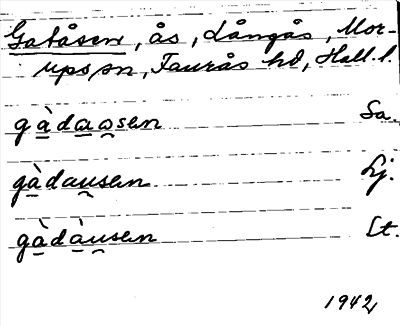 Gatåsen, ås, Långås, Mor-
ups sn, Faurås hd, Hall. l.
gàdaɷsen Sa.
gàdausen Lj.
gàdàusen Lt.
1942